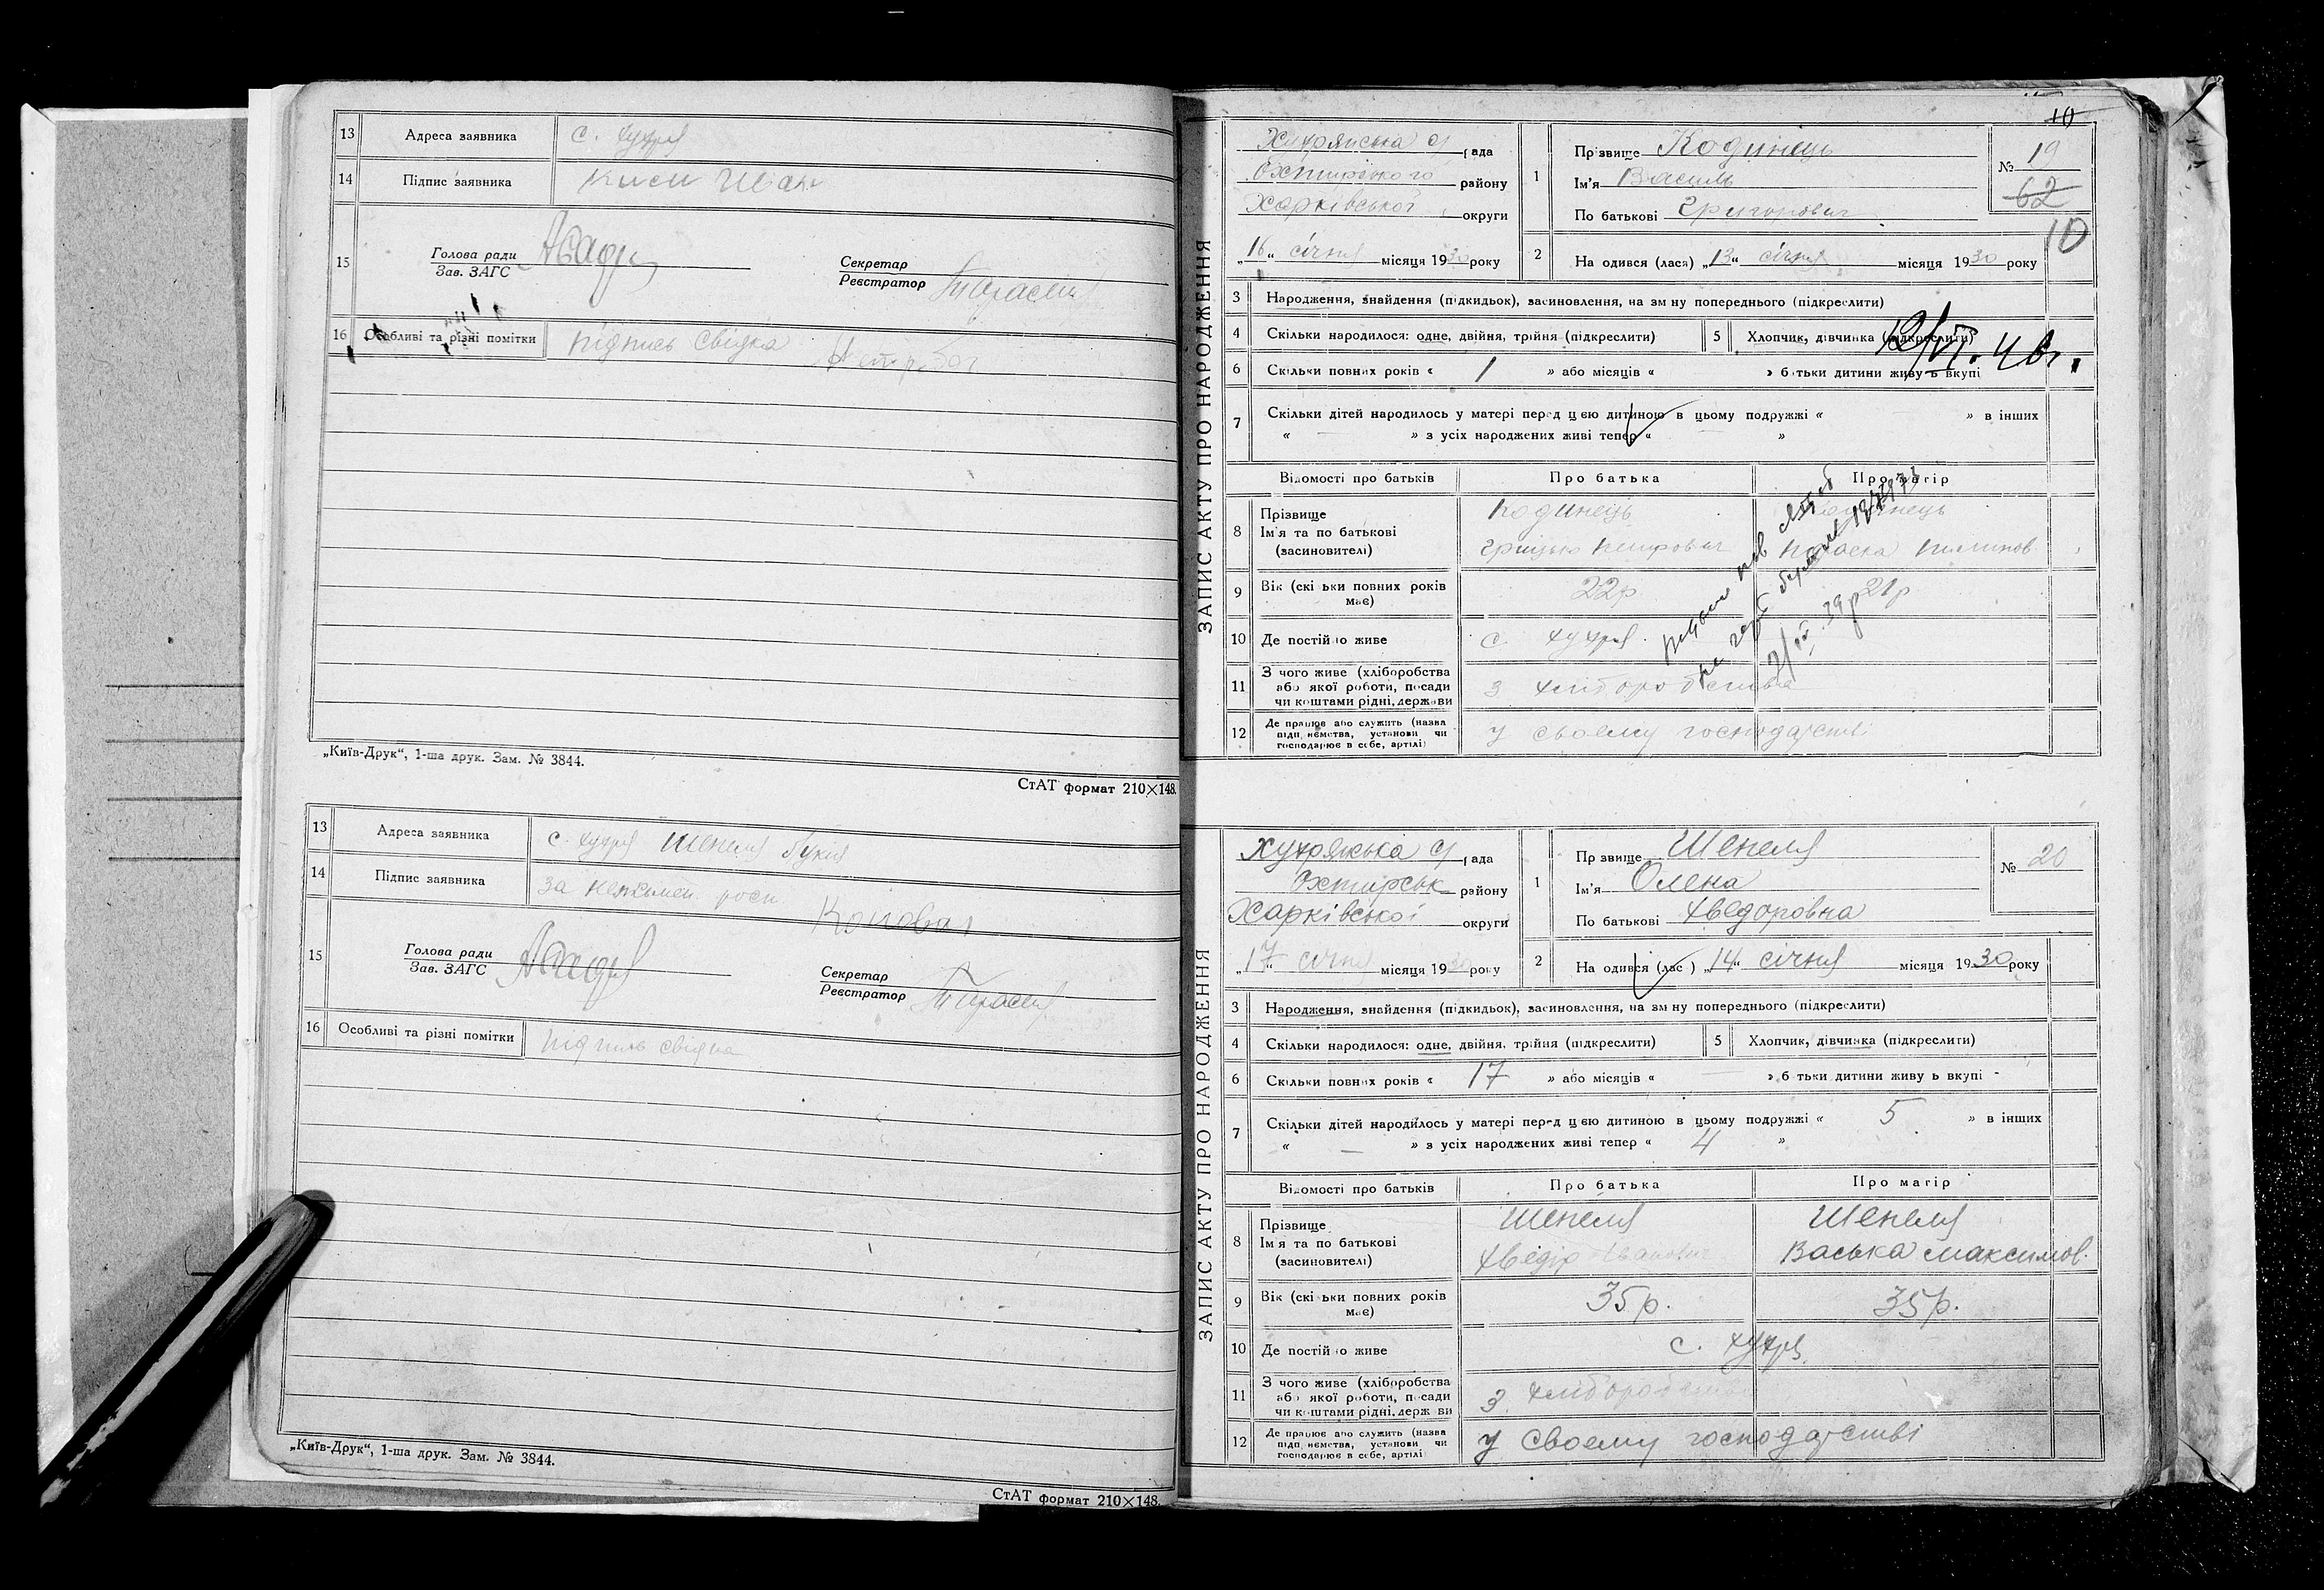 13 Адреса заявника с. Хухря
14 Підпис заявника Киси Иван
15 Голова ради
Зав. ЗАГС
Секретар
Реєстратор
16 Особливі та різні помітки підпись свідка
„Київ-Друк“, 1-ша друк. Зам. № 3844.
СтАТ формат 210×148.
13 Адреса заявника с. Хухря Шепеля
14 Підпис заявника за неписьмен. росп. Коновал
15 Голова ради
Зав. ЗАГС
Секретар
Реєстратор
16 Особливі та різні помітки підпись свідка
„Київ-Друк“, 1-ша друк. Зам. № 3844.
СтАТ формат 210×148.
10
ЗАПИС АКТУ ПРО НАРОДЖЕННЯ
Хухрянська с/рада
Охтирського району
Харківської округи
„16“ січня місяця 1930 року
1 Прізвище Кодинець
Ім'я Василь
По батькові Григорович
№ 19
62
10
2 На одився (лася) „13“ січня місяця 1930 року
3 Народження, знайдення (підкидьок), засиновлення, на зм ну попереднього (підкреслити)
4 Скільки народилося: одне, двійня, трійня (підкреслити)
5 Хлопчик, дівчинка (підкреслити)
6 Скільки повних років « 1 » або місяців « » б тьки дитини живу ь вкупі
7 Скільки дітей народилось у матері перед цією дитиною в цьому подружжі « » в інших
« — » з усіх народжених живі тепер « »
Відомості про батьків Про батька Про матір
8 Прізвище
Ім'я та по батькові
(засиновителі)
Кодинець
Грицько Петрович
Кодинець
Параска Пилипов.
9 Вік (скі ьки повних років має) 22р 21р
10 Де постій о живе с. Хухря.
11 З чого живе (хліборобства
або якої роботи, посади
чи коштами рідні, держави
з хліборобства
12 Де працює або служить (назва
підп иємства, установи чи
господарює в себе, артілі)
у своему господарстві
ЗАПИС АКТУ ПРО НАРОДЖЕННЯ
Хухрянська с/рада
Охтирськ району
Харківської округи
„17“ січня місяця 1930 року
1 Пр звище Шепеля
Ім'я Олена
По батькові Хведоровна
№ 20
2 На одився (лас ) „14“ січня місяця 1930 року
3 Народження, знайдення (підкидьок), засиновлення, на зм ну попереднього (підкреслити)
4 Скільки народилося: одне, двійня, трійня (підкреслити)
5 Хлопчик, дівчинка (підкреслити)
6 Скільки повних років « 17 » або місяців « — » б тьки дитини живу ь вкупі
7 Скільки дітей народилось у матері перед цією дитиною в цьому подружжі « 5 » в інших
« — » з усіх народжених живі тепер « 4 »
Відомості про батьків Про батька Про матір
8 Прізвище
Ім'я та по батькові
(засиновителі)
Шепеля
Хведір Іванович
Шепеля
Васька Максимов.
9 Вік (скі ьки повних років має) 35р. 35р.
10 Де постій о живе с. Хухря
11 З чого живе (хліборобства
або якої роботи, посади
чи коштами рідні, держ ви
з хліборобства
12 Де працює або служить (назва
підп иємства, установи чи
господарює в себе, артілі
у своему господарстві